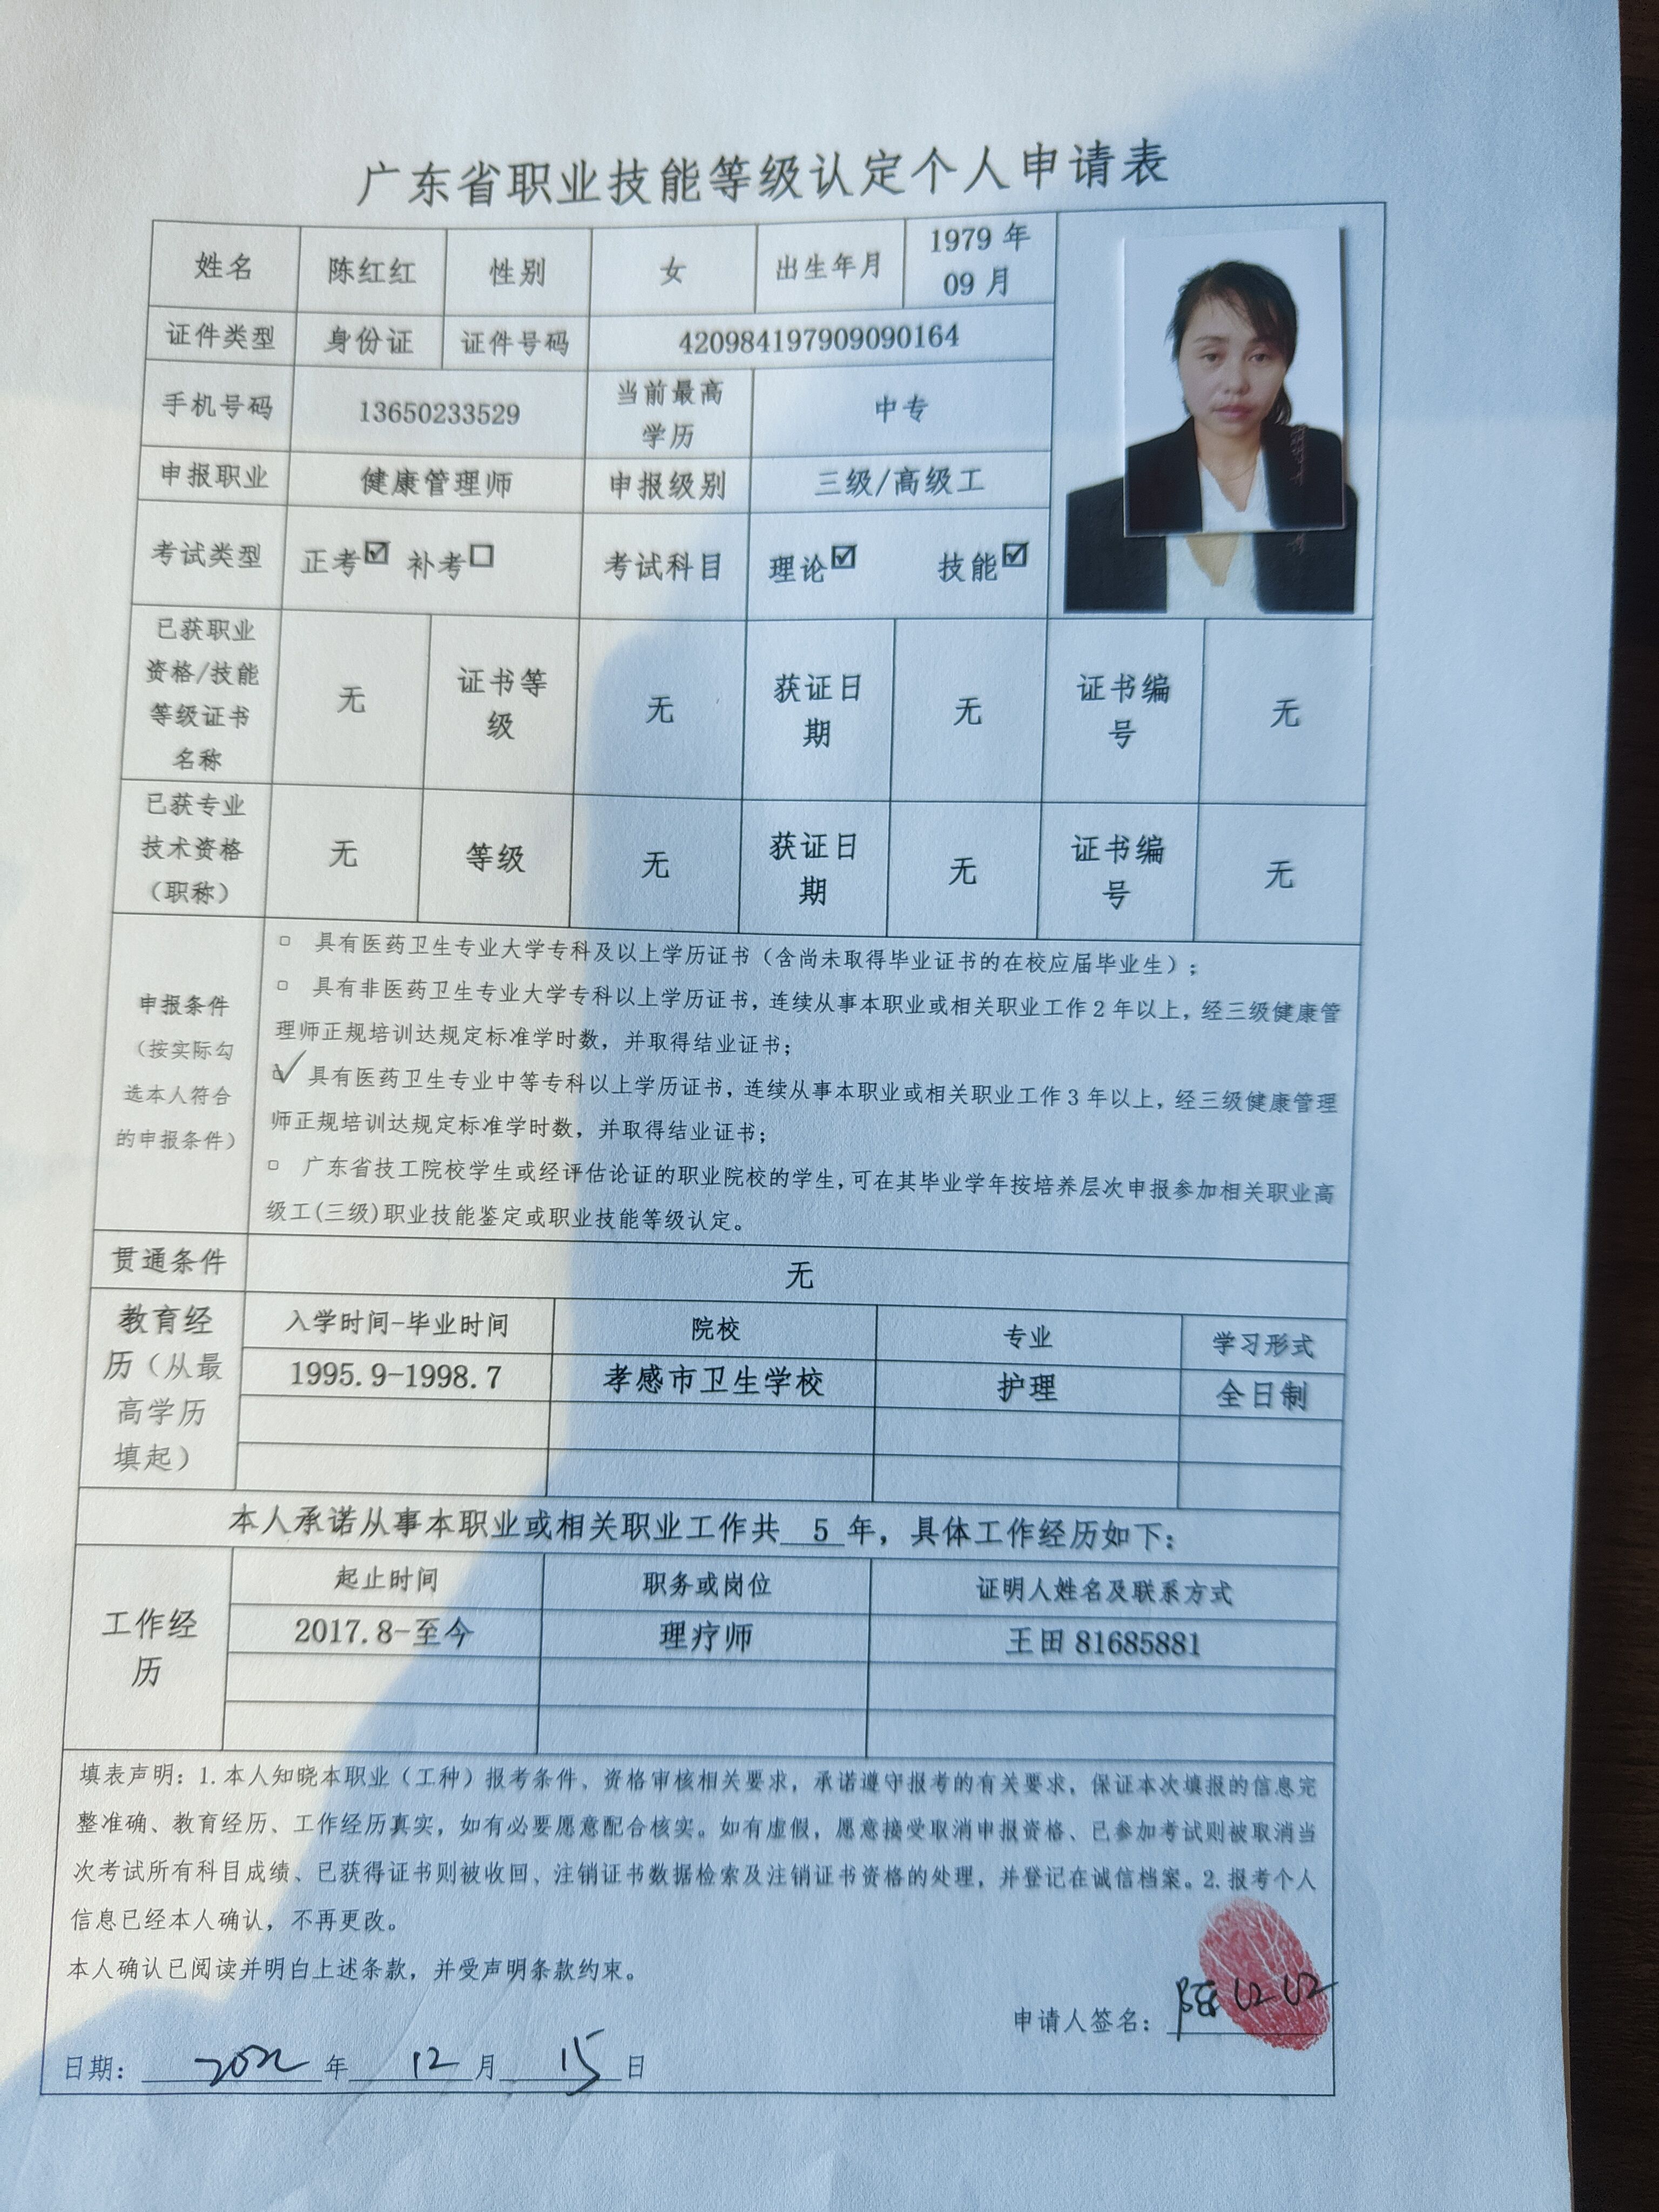 广东省职业技能等级认定个人申请表
姓名 陈红红 性别 女 出生年月 1979 年
09 月
证件类型 身份证 证件号码 420984197909090164
手机号码 13650233529 当前最高
学历 中专
申报职业 健康管理师 申报级别 三级/高级工
考试类型 正考☑ 补考☐ 考试科目 理论☑ 技能☑
已获职业
资格/技能
等级证书
名称 无 证书等
级 无 获证日
期 无 证书编
号 无
已获专业
技术资格
(职称) 无 等级 无 获证日
期 无 证书编
号 无
申报条件
(按实际勾
选本人符合
的申报条件)
□ 具有医药卫生专业大学专科及以上学历证书(含尚未取得毕业证书的在校应届毕业生);
□ 具有非医药卫生专业大学专科以上学历证书,连续从事本职业或相关职业工作 2 年以上,经三级健康管
理师正规培训达规定标准学时数,并取得结业证书;
☑ 具有医药卫生专业中等专科以上学历证书,连续从事本职业或相关职业工作 3 年以上,经三级健康管理
师正规培训达规定标准学时数,并取得结业证书;
□ 广东省技工院校学生或经评估论证的职业院校的学生,可在其毕业学年按培养层次申报参加相关职业高
级工(三级)职业技能鉴定或职业技能等级认定。
贯通条件 无
教育经
历(从最
高学历
填起)
入学时间-毕业时间 院校 专业 学习形式
1995.9-1998.7 孝感市卫生学校 护理 全日制
本人承诺从事本职业或相关职业工作共 5 年,具体工作经历如下:
工作经
历
起止时间 职务或岗位 证明人姓名及联系方式
2017.8-至今 理疗师 王田 81685881
填表声明:1.本人知晓本职业(工种)报考条件、资格审核相关要求,承诺遵守报考的有关要求,保证本次填报的信息完
整准确、教育经历、工作经历真实,如有必要愿意配合核实。如有虚假,愿意接受取消申报资格、已参加考试则被取消当
次考试所有科目成绩、已获得证书则被收回、注销证书数据检索及注销证书资格的处理,并登记在诚信档案。2.报考个人
信息已经本人确认,不再更改。
本人确认已阅读并明白上述条款,并受声明条款约束。
申请人签名:陈红红
日期:2022年12月15日